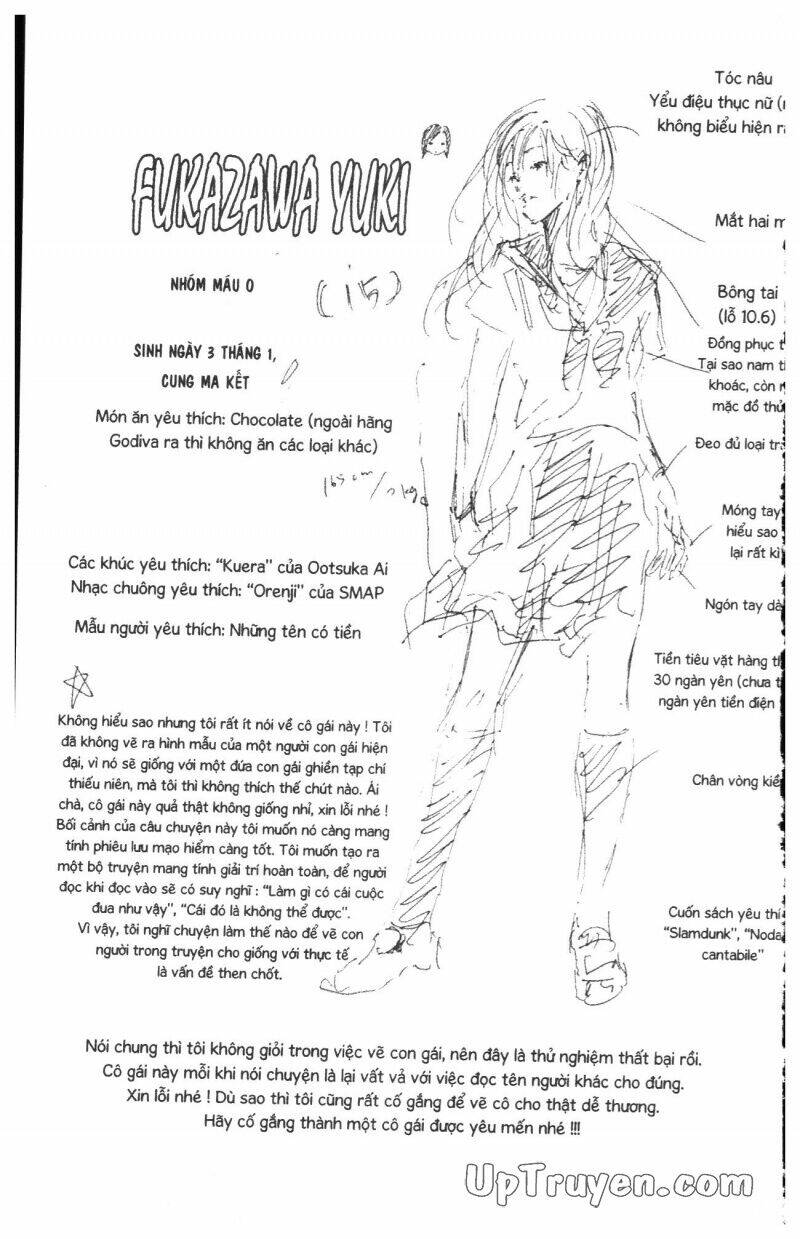 FUKAZAWA YUKI
NHÓM MÁU O
(15)
SINH NGÀY 3 THÁNG 1,
CUNG MA KẾT
Món ăn yêu thích: Chocolate (ngoài hãng
Godiva ra thì không ăn các loại khác)
165 cm/
Các khúc yêu thích: “Kuera” của Ootsuka Ai
Nhạc chuông yêu thích: “Orenji” của SMAP
Mẫu người yêu thích: Những tên có tiền
Không hiểu sao nhưng tôi rất ít nói về cô gái này ! Tôi
đã không vẽ ra hình mẫu của một người con gái hiện
đại, vì nó sẽ giống với một đứa con gái ghiền tạp chí
thiếu niên, mà tôi thì không thích thế chút nào. Ái
chà, cô gái này quả thật không giống nhỉ, xin lỗi nhé !
Bối cảnh của câu chuyện này tôi muốn nó càng mang
tính phiêu lưu mạo hiểm càng tốt. Tôi muốn tạo ra
một bộ truyện mang tính giải trí hoàn toàn, để người
đọc khi đọc vào sẽ có suy nghĩ : “Làm gì có cái cuộc
đua như vậy”, “Cái đó là không thể được”.
Vì vậy, tôi nghĩ chuyện làm thế nào để vẽ con
người trong truyện cho giống với thực tế
là vấn đề then chốt.
Tóc nâu
Yểu điệu thục nữ
không biểu hiện
Mắt hai
Bông tai
(lỗ 10.6)
Đồng phục
Tại sao nam
khoác, còn
mặc đồ
Đeo đủ loại
Móng tay
hiểu sao
lại rất
Ngón tay
Tiền tiêu vặt hàng
30 ngàn yên (chưa
ngàn yên tiền điện
Chân vòng
Cuốn sách yêu
“Slamdunk”,
cantabile”
Nói chung thì tôi không giỏi trong việc vẽ con gái, nên đây là thử nghiệm thất bại rồi.
Cô gái này mỗi khi nói chuyện là lại vất vả với việc đọc tên người khác cho đúng.
Xin lỗi nhé ! Dù sao thì tôi cũng rất cố gắng để vẽ cô cho thật dễ thương.
Hãy cố gắng thành một cô gái được yêu mến nhé !!!
UpTruyen.com